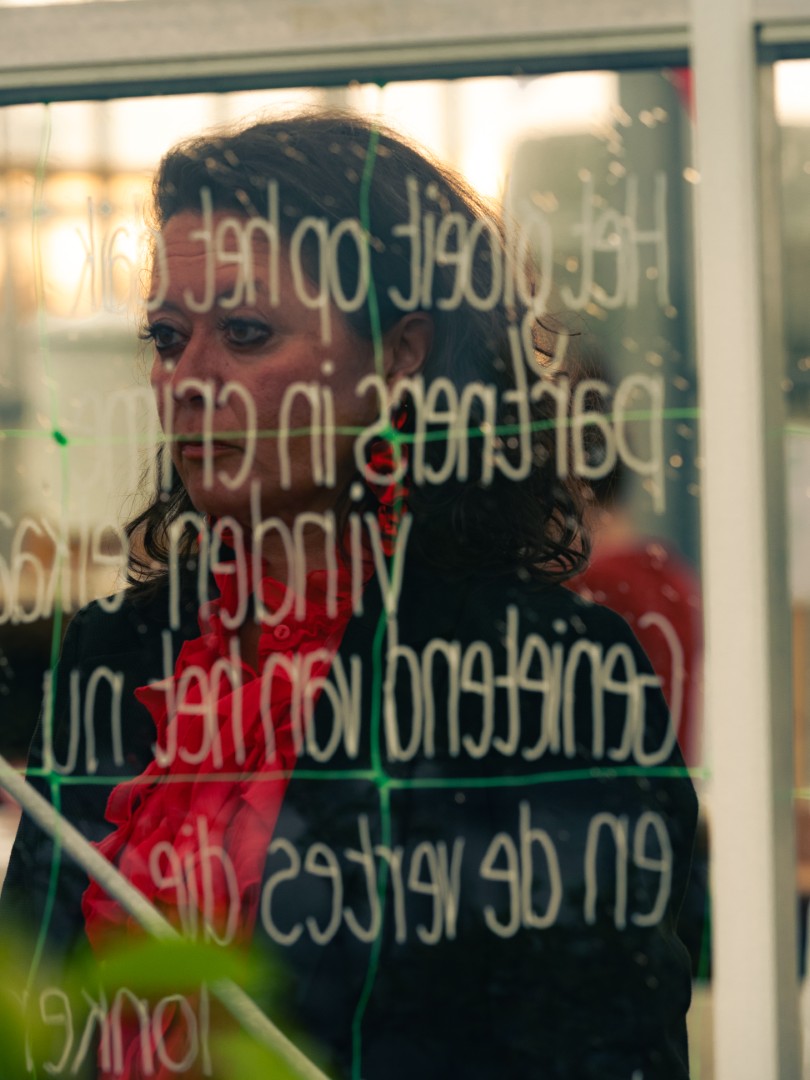 Het gloeit op het dak
partners in crime
vinden elkaa
Genietend van het nu
en de vertes die
lonke